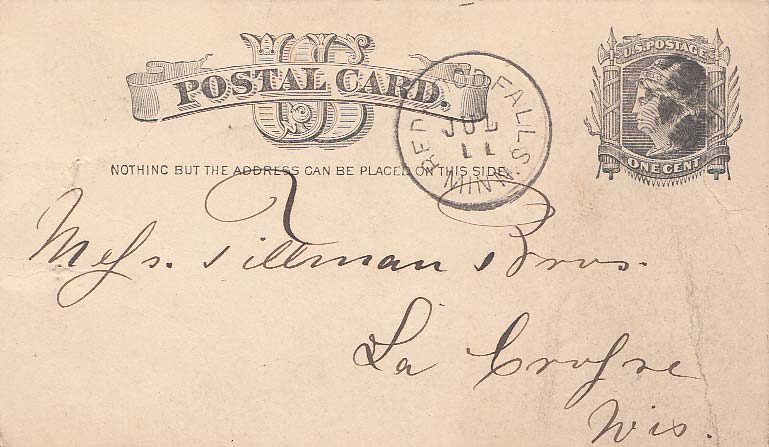 US
POSTAL CARD.
U.S. POSTAGE
ONE CENT
RED FALLS
JUL
11
MINN.
NOTHING BUT THE ADDRESS CAN BE PLACED ON THIS SIDE.
Mess. Tillman Bros.
La Crosse
Wis.